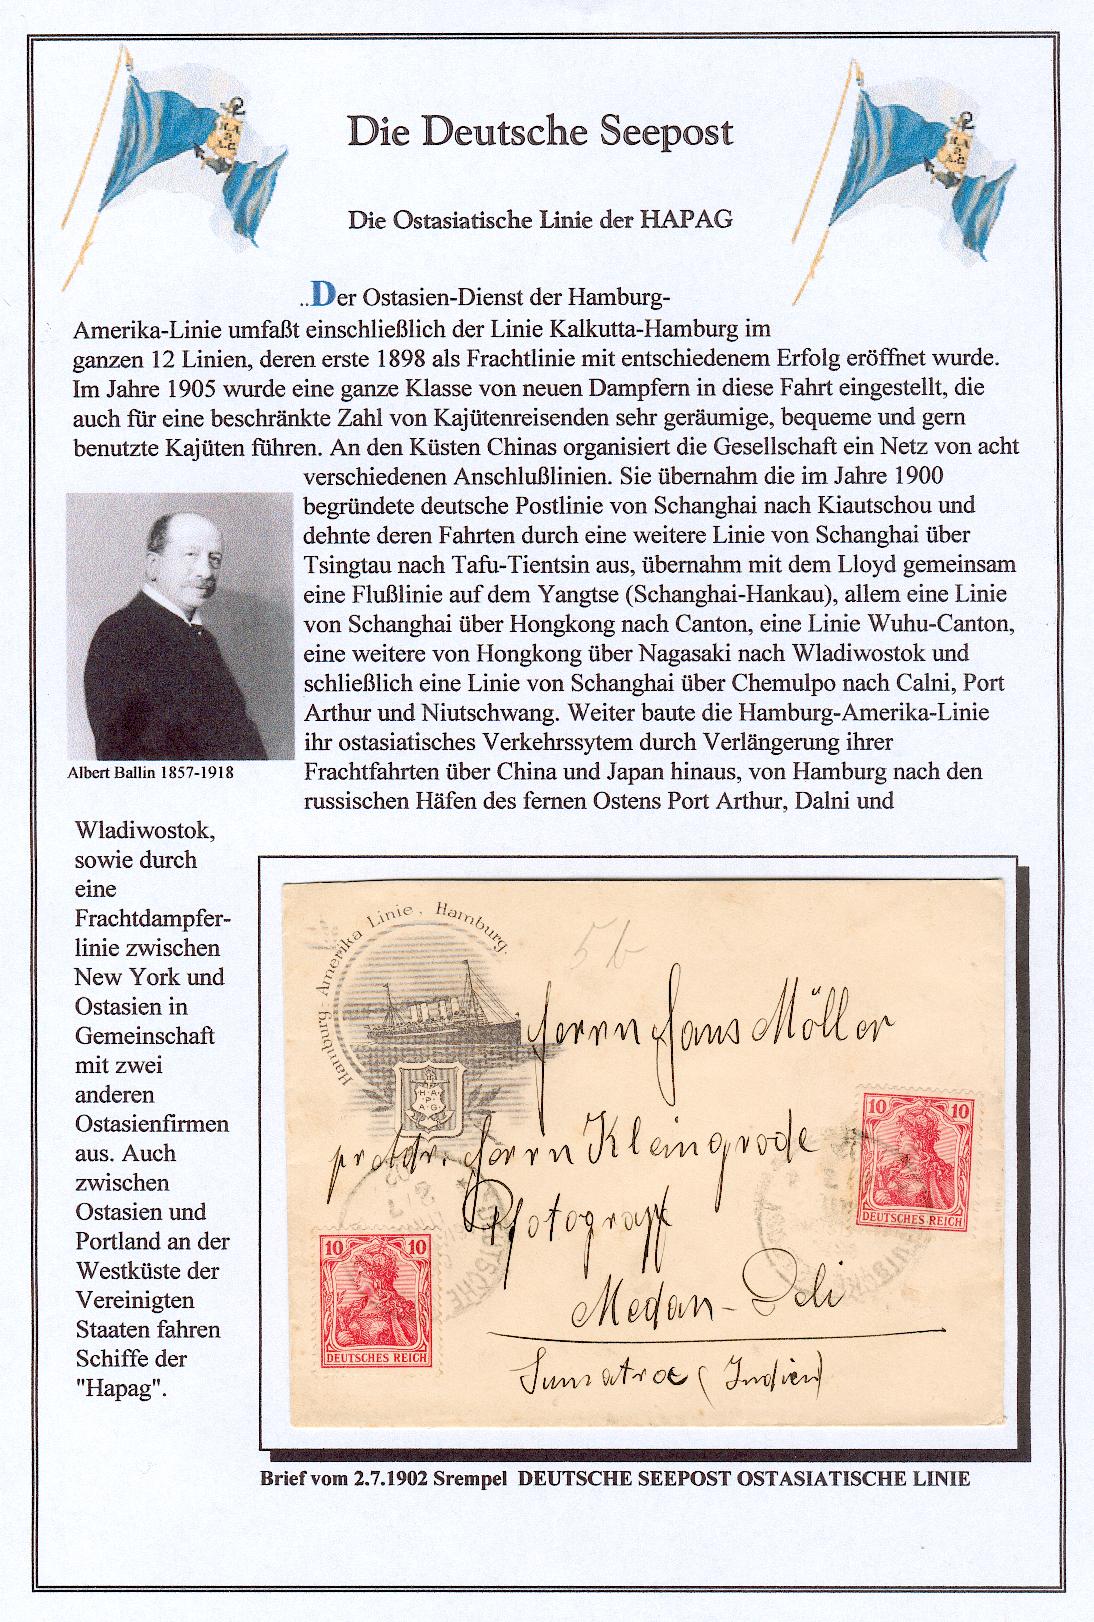 Die Deutsche Seepost
Die Ostasiatische Linie der HAPAG
..Der Ostasien-Dienst der Hamburg-
Amerika-Linie umfaßt einschließlich der Linie Kalkutta-Hamburg im
ganzen 12 Linien, deren erste 1898 als Frachtlinie mit entschiedenem Erfolg eröffnet wurde.
Im Jahre 1905 wurde eine ganze Klasse von neuen Dampfern in diese Fahrt eingestellt, die
auch für eine beschränkte Zahl von Kajütenreisenden sehr geräumige, bequeme und gern
benutzte Kajüten führen. An den Küsten Chinas organisiert die Gesellschaft ein Netz von acht
verschiedenen Anschlußlinien. Sie übernahm die im Jahre 1900
begründete deutsche Postlinie von Schanghai nach Kiautschou und
dehnte deren Fahrten durch eine weitere Linie von Schanghai über
Tsingtau nach Tafu-Tientsin aus, übernahm mit dem Lloyd gemeinsam
eine Flußlinie auf dem Yangtse (Schanghai-Hankau), allem eine Linie
von Schanghai über Hongkong nach Canton, eine Linie Wuhu-Canton,
eine weitere von Hongkong über Nagasaki nach Wladiwostok und
schließlich eine Linie von Schanghai über Chemulpo nach Calni, Port
Arthur und Niutschwang. Weiter baute die Hamburg-Amerika-Linie
ihr ostasiatisches Verkehrssytem durch Verlängerung ihrer
Frachtfahrten über China und Japan hinaus, von Hamburg nach den
russischen Häfen des fernen Ostens Port Arthur, Dalni und
Albert Ballin 1857-1918
Wladiwostok,
sowie durch
eine
Frachtdampfer-
linie zwischen
New York und
Ostasien in
Gemeinschaft
mit zwei
anderen
Ostasienfirmen
aus. Auch
zwischen
Ostasien und
Portland an der
Westküste der
Vereinigten
Staaten fahren
Schiffe der
"Hapag".
Hamburg-Amerika Linie, Hamburg.
H.A.P.A.G.
5b
Herrn Hans Möller
pr. Adr. Herrn Kleingrode
Photograph
Medan-Deli
Sumatra (Indien)
10 10
DEUTSCHES REICH
10 10
DEUTSCHES REICH
DEUTSCHE
Brief vom 2.7.1902 Srempel DEUTSCHE SEEPOST OSTASIATISCHE LINIE